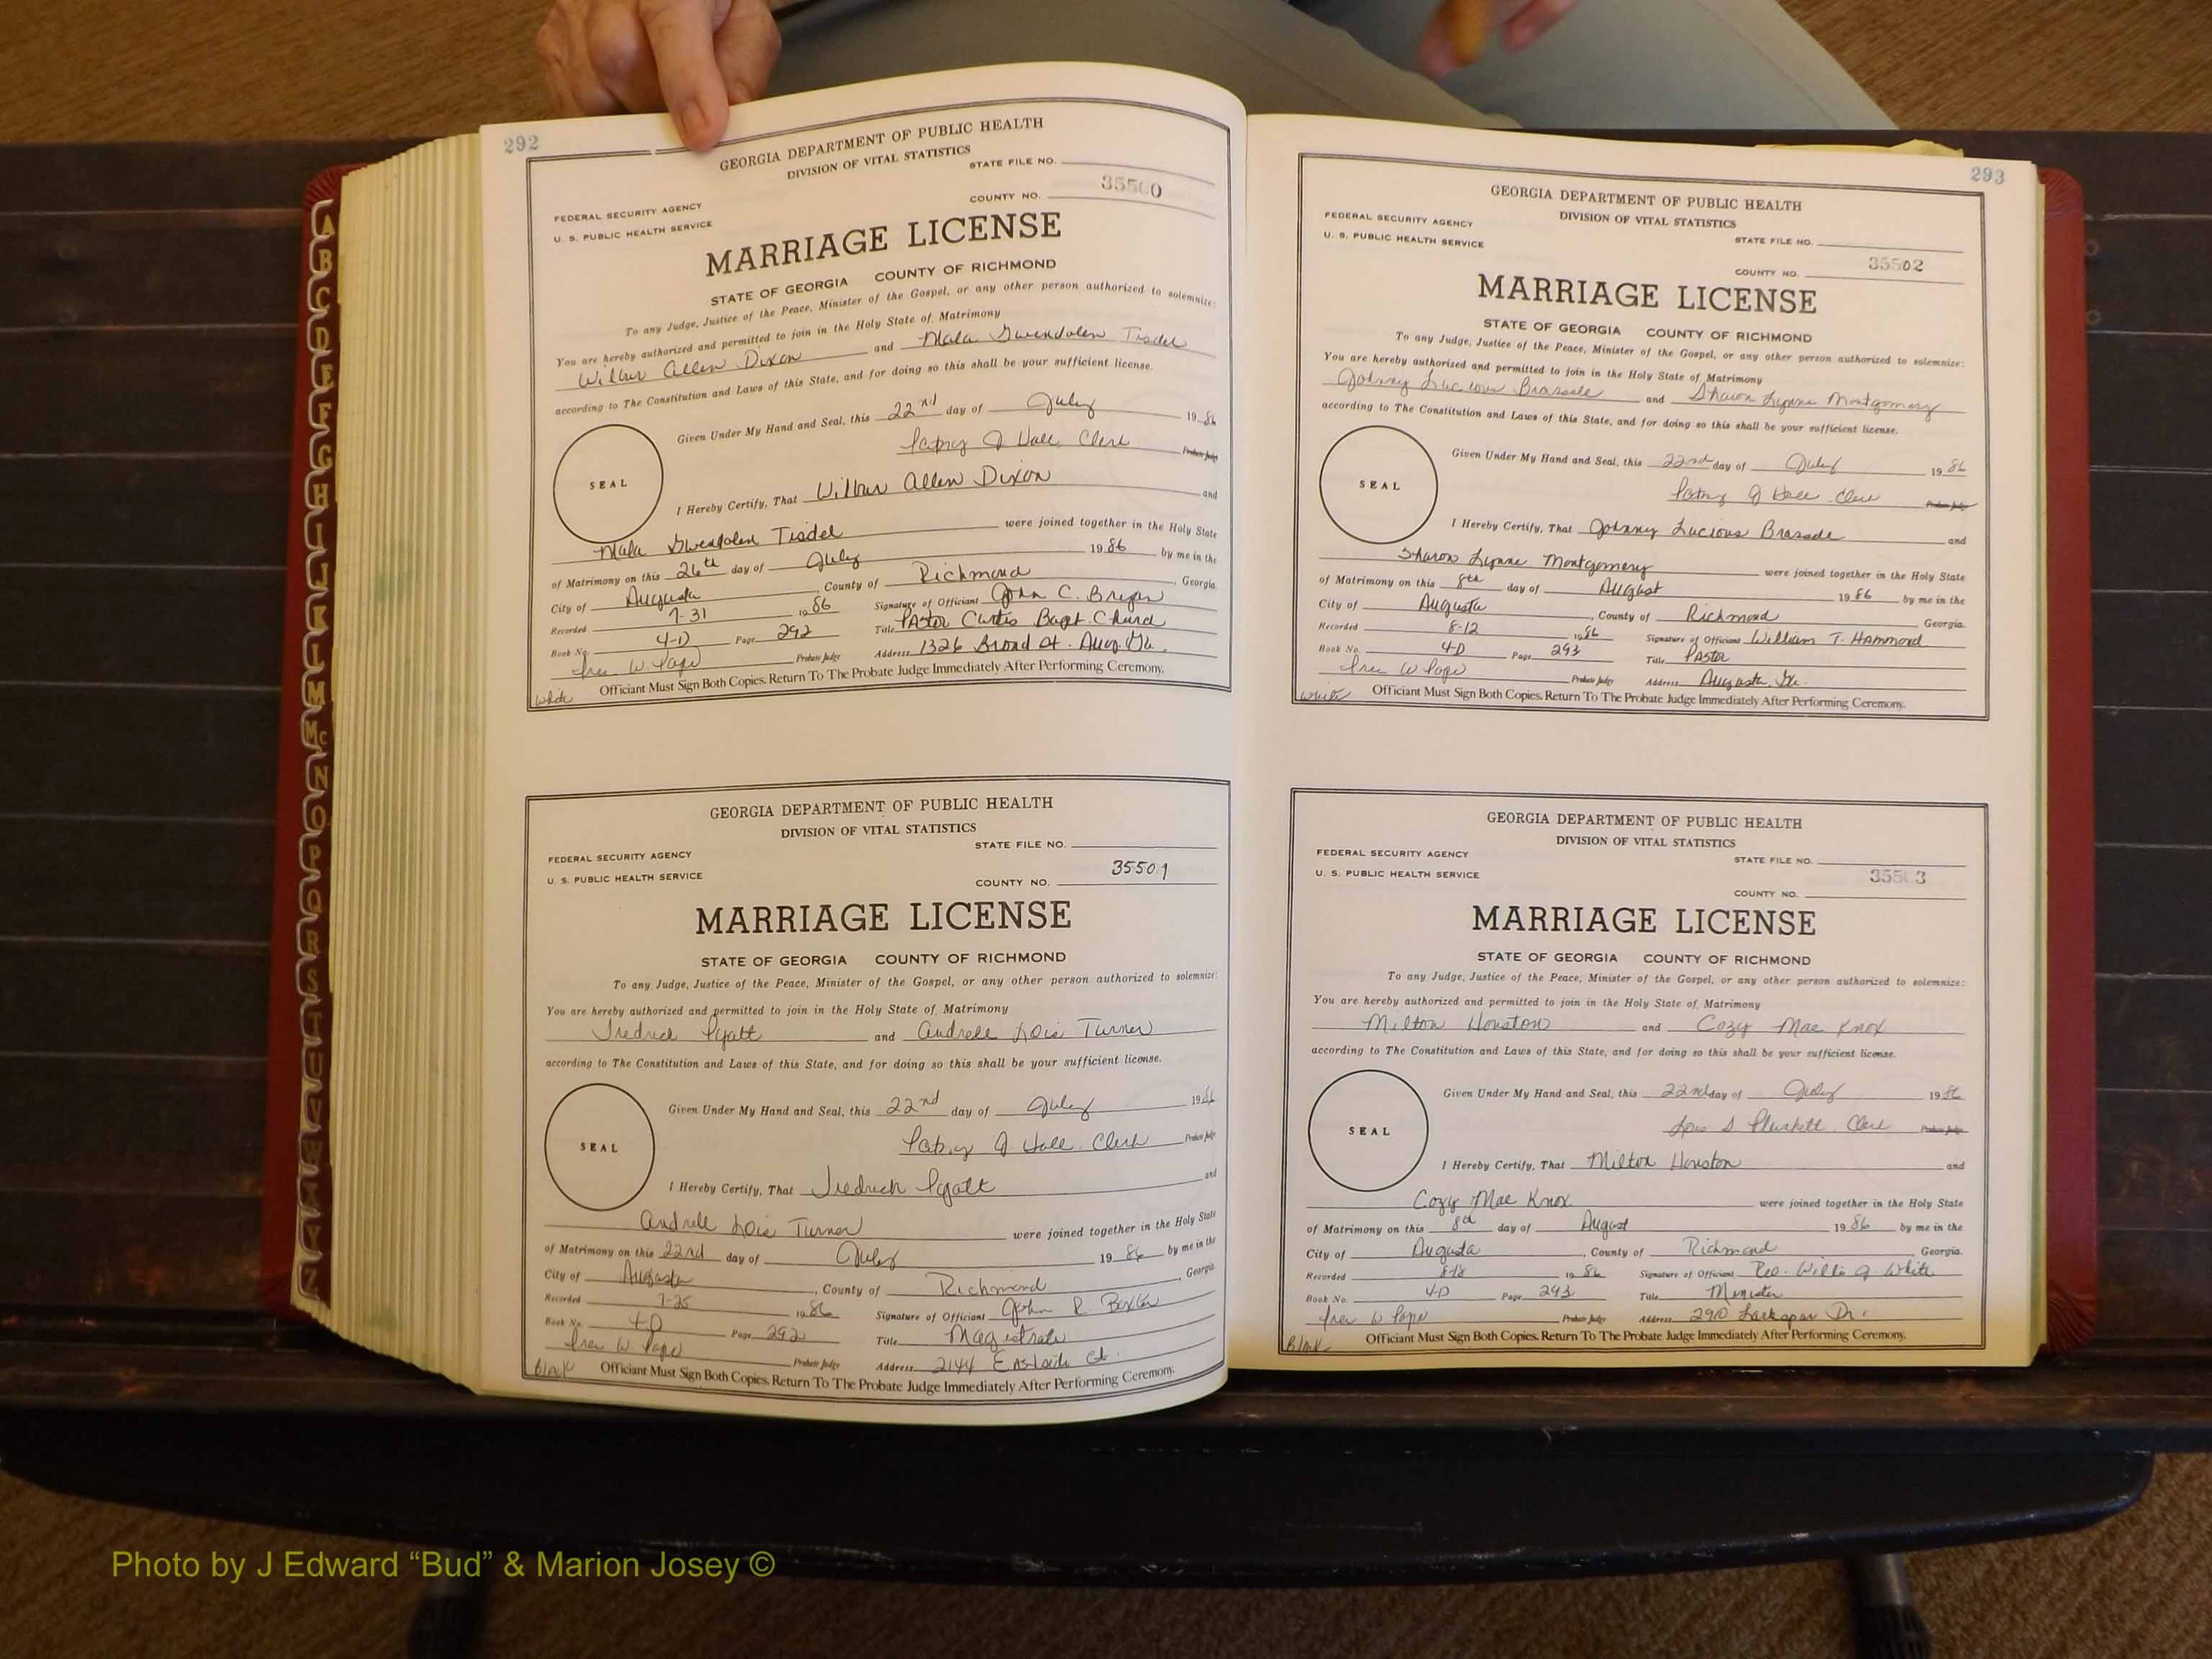 292
GEORGIA DEPARTMENT OF PUBLIC HEALTH
DIVISION OF VITAL STATISTICS
STATE FILE NO.
35500
COUNTY NO.
FEDERAL SECURITY AGENCY
U. S. PUBLIC HEALTH SERVICE
MARRIAGE LICENSE
STATE OF GEORGIA COUNTY OF RICHMOND
To any Judge, Justice of the Peace, Minister of the Gospel, or any other person authorized to solemnize:
You are hereby authorized and permitted to join in the Holy State of Matrimony
Wilbur Allen Dixon and Mala Gwendolen Tisdel
according to The Constitution and Laws of this State, and for doing so this shall be your sufficient license.
Given Under My Hand and Seal, this 22nd day of July 1986
Hall, Clerk Probate Judge
SEAL
I Hereby Certify, That Wilbur Allen Dixon and
Mala Gwendolen Tisdel were joined together in the Holy State
of Matrimony on this 26th day of July 1986 by me in the
City of Augusta, County of Richmond, Georgia.
Recorded 7-31 1986 Signature of Officiant John C. Bryan
Book No. 4-D Page 292 Title Pastor Curtis Bapt. Church
Probate Judge Address 1326 Broad St. Aug. Ga.
White Officiant Must Sign Both Copies. Return To The Probate Judge Immediately After Performing Ceremony.
GEORGIA DEPARTMENT OF PUBLIC HEALTH
DIVISION OF VITAL STATISTICS
STATE FILE NO.
35501
COUNTY NO.
FEDERAL SECURITY AGENCY
U. S. PUBLIC HEALTH SERVICE
MARRIAGE LICENSE
STATE OF GEORGIA COUNTY OF RICHMOND
To any Judge, Justice of the Peace, Minister of the Gospel, or any other person authorized to solemnize:
You are hereby authorized and permitted to join in the Holy State of Matrimony
Fredrick Pyatt and Andrell Lois Turner
according to The Constitution and Laws of this State, and for doing so this shall be your sufficient license.
Given Under My Hand and Seal, this 22nd day of July 1986
Hall, Clerk Probate Judge
SEAL
I Hereby Certify, That Fredrick Pyatt and
Andrell Lois Turner were joined together in the Holy State
of Matrimony on this 22nd day of July 1986 by me in the
City of Augusta, County of Richmond, Georgia.
Recorded 7-25 1986 Signature of Officiant John R. Baxter
Book No. 4-D Page 292 Title Magistrate
Probate Judge Address 2144 Eastside Ct.
Black Officiant Must Sign Both Copies. Return To The Probate Judge Immediately After Performing Ceremony.
293
GEORGIA DEPARTMENT OF PUBLIC HEALTH
DIVISION OF VITAL STATISTICS
FEDERAL SECURITY AGENCY
U. S. PUBLIC HEALTH SERVICE
STATE FILE NO.
35502
COUNTY NO.
MARRIAGE LICENSE
STATE OF GEORGIA COUNTY OF RICHMOND
To any Judge, Justice of the Peace, Minister of the Gospel, or any other person authorized to solemnize:
You are hereby authorized and permitted to join in the Holy State of Matrimony
Johnny Lucious Brassele and Sharon Lynne Montgomery
according to The Constitution and Laws of this State, and for doing so this shall be your sufficient license.
Given Under My Hand and Seal, this 22nd day of July 1986
Hall, Clerk Probate Judge
SEAL
I Hereby Certify, That Johnny Lucious Brassele and
Sharon Lynne Montgomery were joined together in the Holy State
of Matrimony on this 8th day of August 1986 by me in the
City of Augusta, County of Richmond, Georgia.
Recorded 8-12 1986 Signature of Officiant William T. Hammond
Book No. 4-D Page 293 Title Pastor
Probate Judge Address Augusta, Ga.
White Officiant Must Sign Both Copies. Return To The Probate Judge Immediately After Performing Ceremony.
GEORGIA DEPARTMENT OF PUBLIC HEALTH
DIVISION OF VITAL STATISTICS
FEDERAL SECURITY AGENCY
U. S. PUBLIC HEALTH SERVICE
STATE FILE NO.
35503
COUNTY NO.
MARRIAGE LICENSE
STATE OF GEORGIA COUNTY OF RICHMOND
To any Judge, Justice of the Peace, Minister of the Gospel, or any other person authorized to solemnize:
You are hereby authorized and permitted to join in the Holy State of Matrimony
Milton Houston and Cozy Mae Knox
according to The Constitution and Laws of this State, and for doing so this shall be your sufficient license.
Given Under My Hand and Seal, this 22nd day of July 1986
Lois S Plunkett, Clerk Probate Judge
SEAL
I Hereby Certify, That Milton Houston and
Cozy Mae Knox were joined together in the Holy State
of Matrimony on this 8th day of August 1986 by me in the
City of Augusta, County of Richmond, Georgia.
Recorded 8-18 1986 Signature of Officiant Rev. Willie J. White
Book No. 4-D Page 293 Title Minister
Probate Judge Address 290 Larkspur Dr.
Black Officiant Must Sign Both Copies. Return To The Probate Judge Immediately After Performing Ceremony.
A
B
C
D
E
F
G
H
I
J
K
L
M
MC
N
O
P
Q
R
S
T
U
V
W
X
Y
Z
Photo by J Edward “Bud” & Marion Josey ©